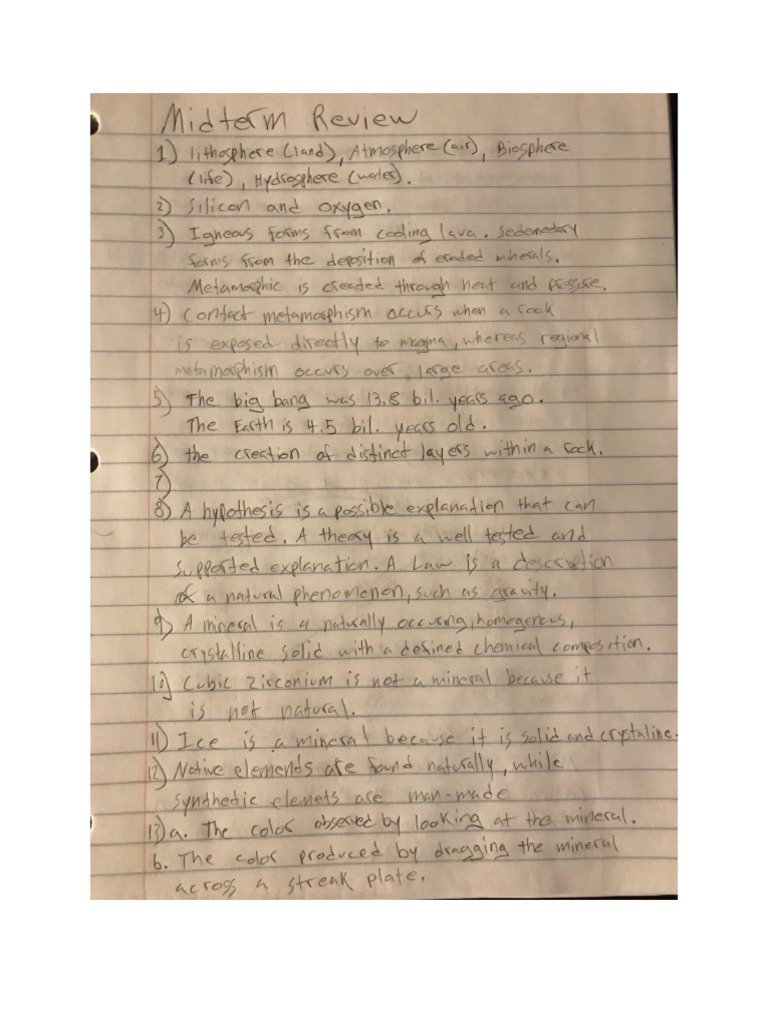 Midterm Review
1) lithosphere (land), Atmosphere (air), Biosphere
(life), Hydrosphere (water).
2) Silicon and oxygen.
3) Igneous forms from cooling lava. Sedemedary
forms from the deposition of eroded minerals.
Metamorphic is created through heat and pressure.
4) Contact metamorphism occurs when a rock
is exposed directly to magma, whereas regional
metamorphism occurs over large areas.
5) The big bang was 13.8 bil. years ago.
The Earth is 4.5 bil. years old.
6) the creation of distinct layers within a rock.
7)
8) A hypothesis is a possible explanation that can
be tested. A theory is a well tested and
supported explanation. A Law is a description
of a natural phenomenon, such as gravity.
9) A mineral is a naturally occuring, homogenous,
crystalline solid with a defined chemical composition.
10) Cubic zirconium is not a mineral because it
is not natural.
11) Ice is a mineral because it is solid and crystaline.
12) Native elements are found naturally, while
synthedic elemets are man-made
13) a. The color observed by looking at the mineral.
b. The color produced by dragging the mineral
across a streak plate.